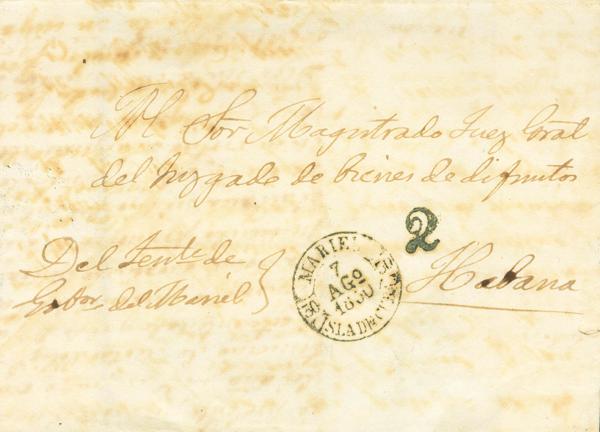 Al Sor Magistrado Juez Gral
del Juzgado de bienes de difuntos
Del Tente de
Gobor. del Mariel
MARIEL
7
AGO
18
ISLA DE CUBA
2
Habana